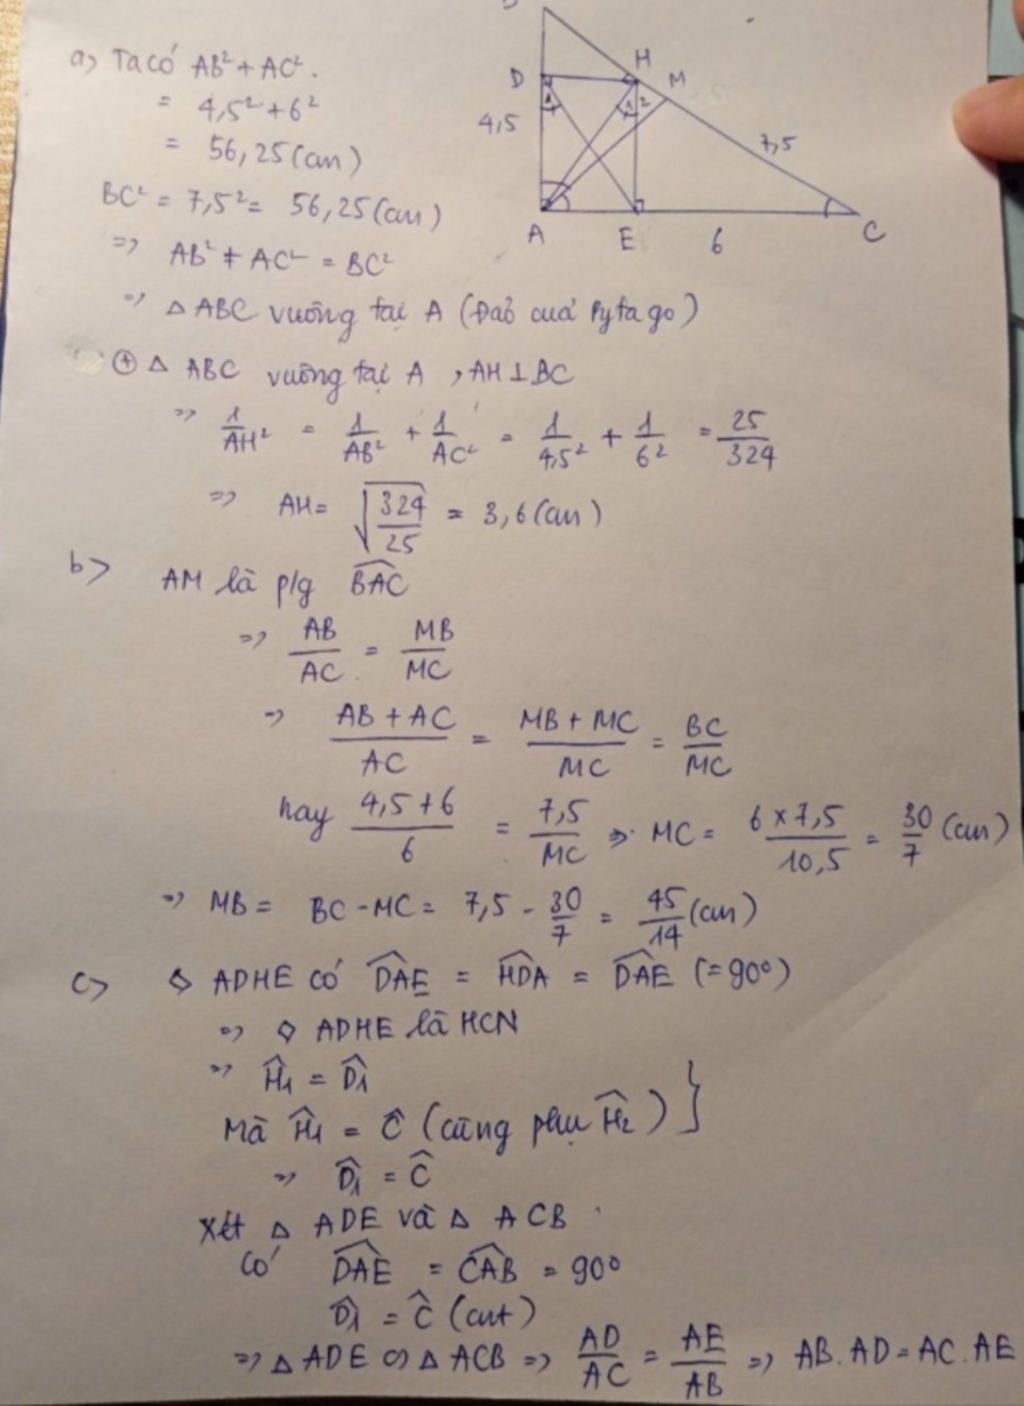 a) Ta có AB² + AC².
= 4,5² + 6²
= 56,25 (cm)
BC² = 7,5² = 56,25 (cm)
=> AB² + AC² = BC²
=> △ ABC vuông tại A (Đảo của Pytago)
D
H
M
4,5
1
1 2
7,5
A
E
6
C
⊕ △ ABC vuông tại A , AH ⊥ BC
=> 1/AH² = 1/AB² + 1/AC² = 1/4,5² + 1/6² = 25/324
=> AH = √(324/25) = 3,6 (cm)
b> AM là p/g \widehat{BAC}
=> AB/AC = MB/MC
=> (AB + AC)/AC = (MB + MC)/MC = BC/MC
hay (4,5+6)/6 = 7,5/MC => MC = (6 × 7,5)/10,5 = 30/7 (cm)
=> MB = BC - MC = 7,5 - 30/7 = 45/14 (cm)
c> ◇ ADHE có \widehat{DAE} = \widehat{HDA} = \widehat{DAE} (= 90°)
=> ◇ ADHE là HCN
=> Ĥ₁ = D̂₁
Mà Ĥ₁ = Ĉ (cùng phụ Ĥ₂) }
=> D̂₁ = Ĉ
Xét △ ADE và △ ACB
có \widehat{DAE} = \widehat{CAB} = 90°
D̂₁ = Ĉ (cmt)
=> △ ADE ∽ △ ACB => AD/AC = AE/AB => AB.AD = AC.AE